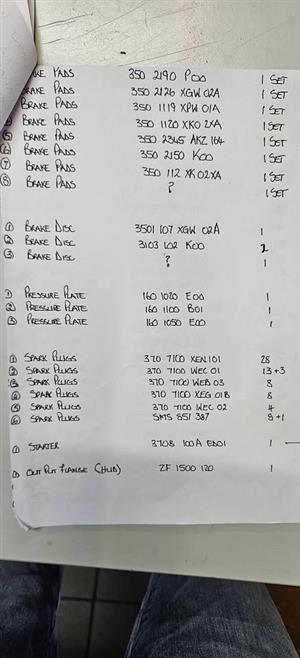 BRAKE PADS 350 2190 P00 1 SET
BRAKE PADS 350 2126 XGW 02A 1 SET
BRAKE PADS 350 1119 XPW 01A 1 SET
BRAKE PADS 350 1120 XK0 2XA 1 SET
⑤ BRAKE PADS 350 2345 AKZ 164 1 SET
⑥ BRAKE PADS 350 2150 K00 1 SET
⑦ BRAKE PADS 350 112 XK02XA 1 SET
⑧ BRAKE PADS ? 1 SET
① BRAKE DISC 3501 107 XGW 02A 1
② BRAKE DISC 3103 102 K00 2
③ BRAKE DISC ? 1
① PRESSURE PLATE 160 1020 E00 1
② PRESSURE PLATE 160 1100 B01 1
③ PRESSURE PLATE 160 1050 E00 1
① SPARK PLUGS 370 7100 XEN 101 28
② SPARK PLUGS 370 7100 WEC 01 13+3
③ SPARK PLUGS 370 7100 WEB 03 8
④ SPARK PLUGS 370 7100 XEG 01B 8
⑤ SPARK PLUGS 370 7100 WEC 02 4
⑥ SPARK PLUGS SMS 851 387 8+1
① STARTER 3708 100A ED01 1
① OUT PUT FLANGE (HUB) ZF 1500 120 1